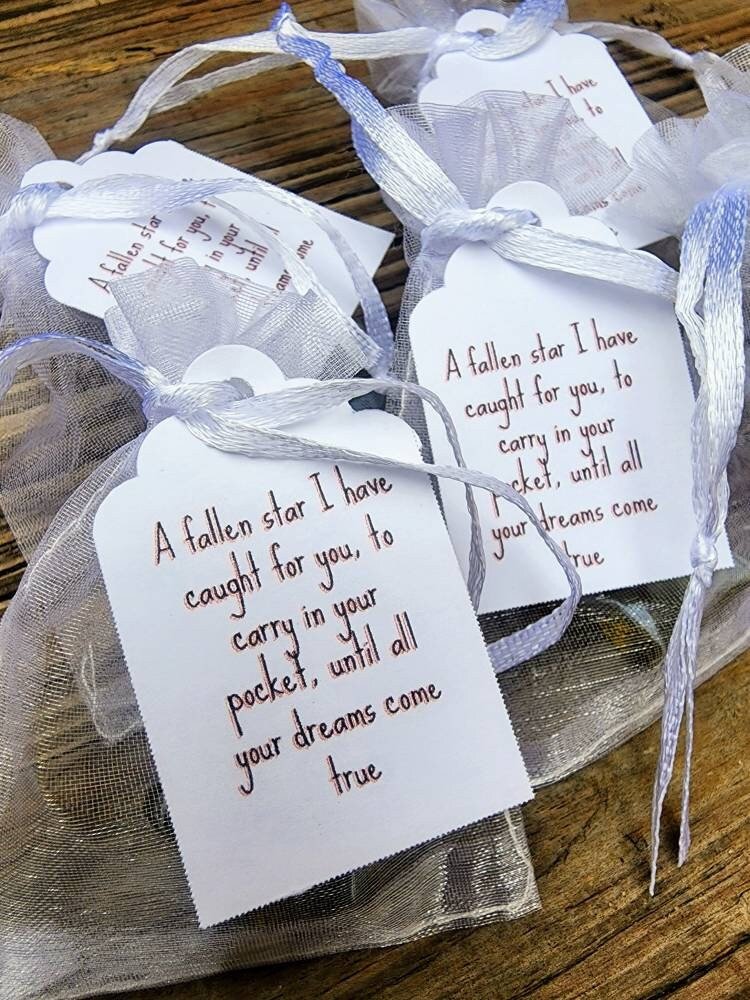 A fallen star I have
caught for you, to
carry in your
pocket, until all
your dreams come
true
A fallen star I have
caught for you, to
carry in your
pocket, until all
your dreams come
true
A fallen star
for you,
in your
until
ome
star I have
to
come